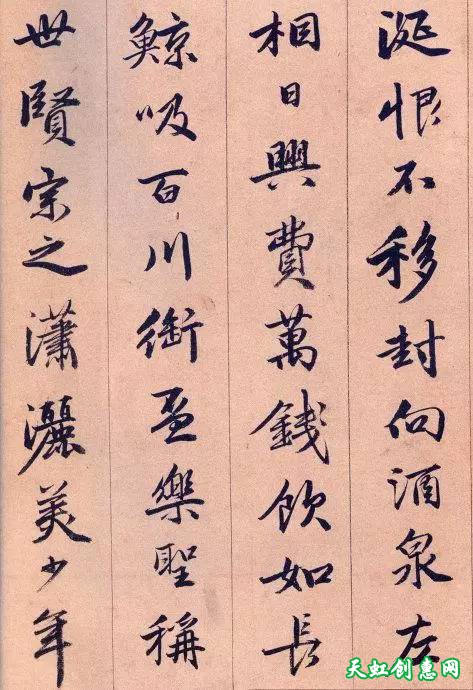 涎恨不移封向酒泉左
相日興費萬錢飲如長
鯨吸百川銜盃樂聖稱
世賢宗之瀟灑美少年
天虹创惠网